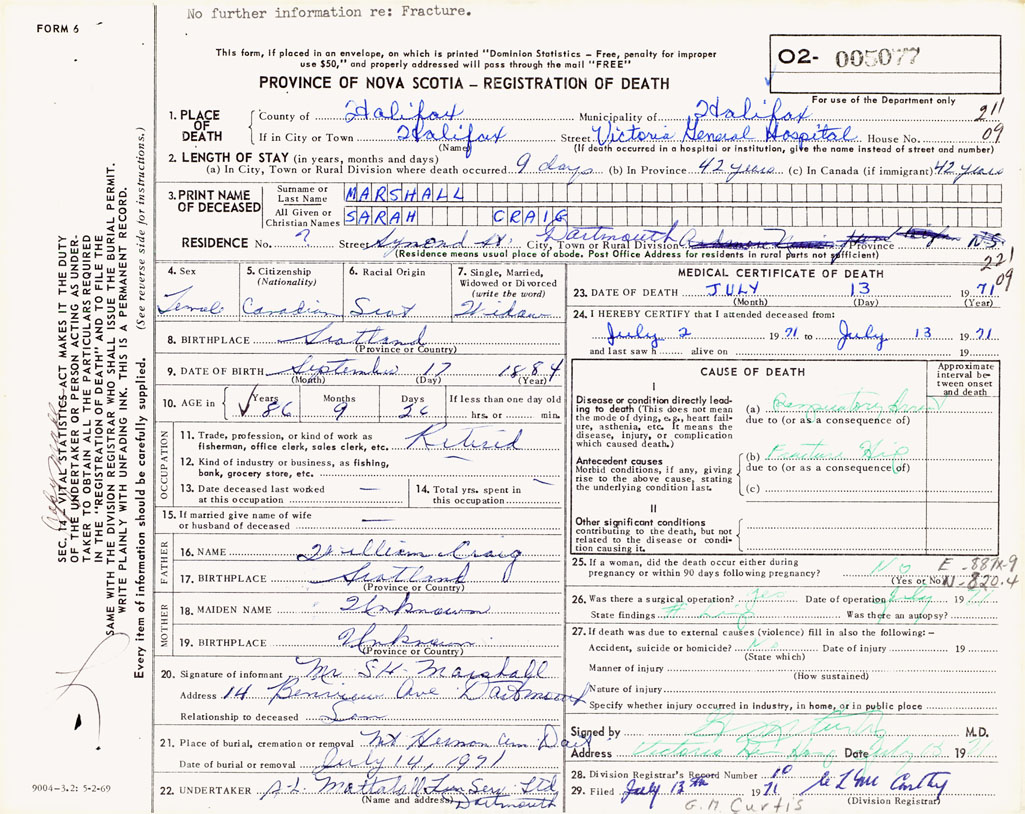 No further information re: Fracture.
FORM 6
This form, if placed in an envelope, on which is printed "Dominion Statistics – Free, penalty for improper
use $50," and properly addressed will pass through the mail "FREE"
O2- 005077
PROVINCE OF NOVA SCOTIA – REGISTRATION OF DEATH
For use of the Department only
211
09
1. PLACE OF DEATH
County of Halifax Municipality of Halifax
If in City or Town Halifax Street Victoria General Hospital House No.
(Name) (If death occurred in a hospital or institution, give the name instead of street and number)
2. LENGTH OF STAY (in years, months and days)
(a) In City, Town or Rural Division where death occurred 9 days (b) In Province 42 years (c) In Canada (if immigrant) 42 years
3. PRINT NAME OF DECEASED
Surname or Last Name MARSHALL
All Given or Christian Names SARAH CRAIG
RESIDENCE No. ? Street Symond St. City, Town or Rural Division Dartmouth Province N.S.
(Residence means usual place of abode. Post Office Address for residents in rural parts not sufficient)
221
09
4. Sex Female
5. Citizenship (Nationality) Canadian
6. Racial Origin Scot
7. Single, Married, Widowed or Divorced (write the word) Widow
8. BIRTHPLACE Scotland
(Province or Country)
9. DATE OF BIRTH September 17 1884
(Month) (Day) (Year)
10. AGE in Years 86 Months 9 Days 26 If less than one day old
hrs. or min.
OCCUPATION
11. Trade, profession, or kind of work as
fisherman, office clerk, sales clerk, etc. Retired
12. Kind of industry or business, as fishing,
bank, grocery store, etc. —
13. Date deceased last worked
at this occupation —
14. Total yrs. spent in
this occupation —
15. If married give name of wife
or husband of deceased —
FATHER
16. NAME William Craig
17. BIRTHPLACE Scotland
(Province or Country)
MOTHER
18. MAIDEN NAME Unknown
19. BIRTHPLACE Unknown
(Province or Country)
20. Signature of informant Mr. S.H. Marshall
Address 14 Ave Dartmouth
Relationship to deceased Son
21. Place of burial, cremation or removal Mt Hermon Dart
Date of burial or removal July 14, 1971
22. UNDERTAKER A.L. Mattatall Serv. Ltd
(Name and address) Dartmouth
MEDICAL CERTIFICATE OF DEATH
23. DATE OF DEATH JULY 13 1971
(Month) (Day) (Year)
24. I HEREBY CERTIFY that I attended deceased from:
July 2 1971 to July 13 1971
and last saw h alive on 19
CAUSE OF DEATH
Approximate interval between onset and death
I
Disease or condition directly leading to death (This does not mean the mode of dying, e.g., heart failure, asthenia, etc. It means the disease, injury, or complication which caused death.)
(a) Respiratory Arrest
due to (or as a consequence of)
Antecedent causes
Morbid conditions, if any, giving rise to the above cause, stating the underlying condition last.
(b) Fracture Hip
due to (or as a consequence of)
(c)
II
Other significant conditions
contributing to the death, but not related to the disease or condition causing it.
25. If a woman, did the death occur either during
pregnancy or within 90 days following pregnancy? No
(Yes or No)
E -887X-9
N-820.4
26. Was there a surgical operation? yes Date of operation July 1971
State findings # hip Was there an autopsy?
27. If death was due to external causes (violence) fill in also the following: –
Accident, suicide or homicide? No Date of injury 19
(State which)
Manner of injury
(How sustained)
Nature of injury
Specify whether injury occurred in industry, in home, or in public place
Signed by M.D.
Address Victoria Gen Hosp Date July 13 1971
28. Division Registrar's Record Number 10
29. Filed July 13th 1971
(Division Registrar)
G.M. CURTIS
SEC. 14, VITAL STATISTICS ACT MAKES IT THE DUTY
OF THE UNDERTAKER OR PERSON ACTING AS UNDER-
TAKER TO OBTAIN ALL THE PARTICULARS REQUIRED
IN THE "REGISTRATION OF DEATH" AND TO FILE THE
SAME WITH THE DIVISION REGISTRAR WHO SHALL ISSUE THE BURIAL PERMIT.
WRITE PLAINLY WITH UNFADING INK. THIS IS A PERMANENT RECORD.
Every item of information should be carefully supplied. (See reverse side for instructions.)
9004-3.2: 5-2-69